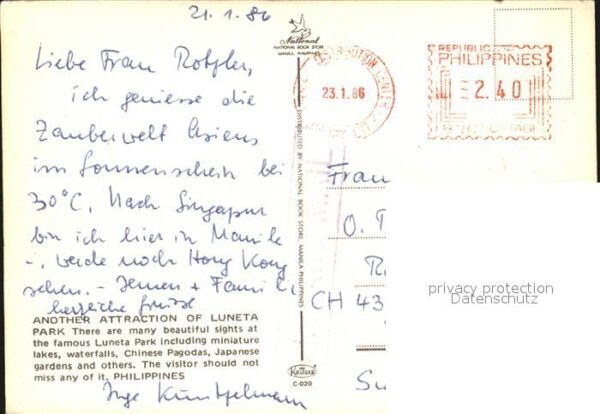 21.1.86
Liebe Frau Rotzler,
ich geniesse die
Zauberwelt Asiens
im Sonnenschein bei
30°C. Nach Singapur
bin ich hier in Manila
werde noch Hong Kong
sehen. - Ihnen + Familie
herzliche Grüsse
Inge
ANOTHER ATTRACTION OF LUNETA
PARK There are many beautiful sights at
the famous Luneta Park including miniature
lakes, waterfalls, Chinese Pagodas, Japanese
gardens and others. The visitor should not
miss any of it. PHILIPPINES
National
NATIONAL BOOK STORE
MANILA, PHILIPPINES
DISTRIBUTED BY NATIONAL BOOK STORE, MANILA PHILIPPINES
Kruger
C-020
23.1.86
REPUBLIC
PHILIPPINES
2.40
POSTAGE
Frau
O.
CH 43
privacy protection
Datenschutz